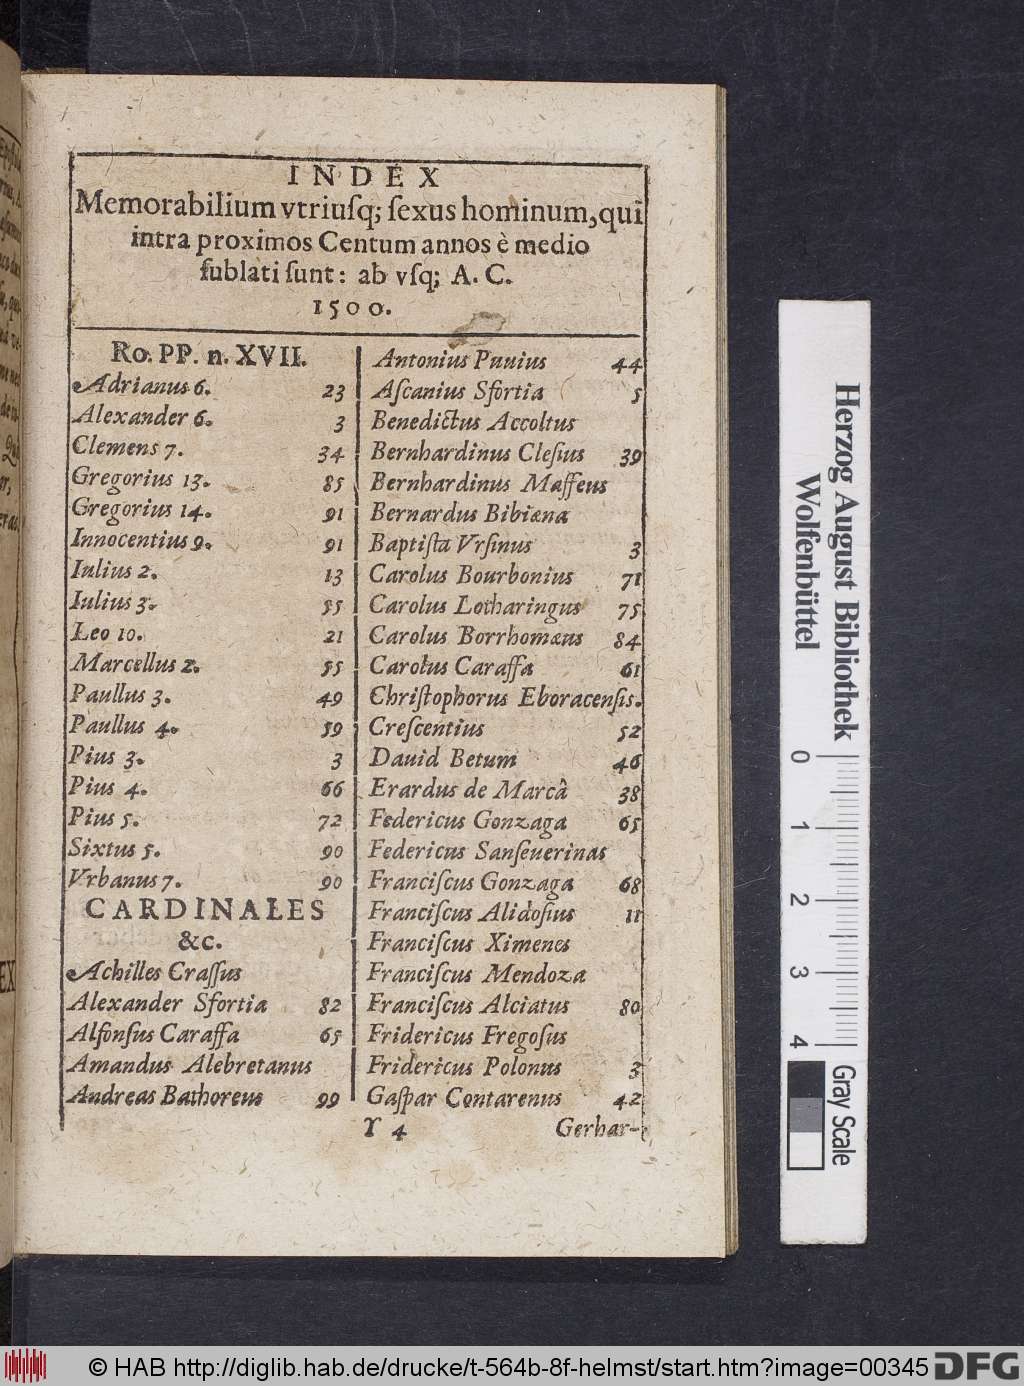 INDEX
Memorabilium vtriuſq; ſexus hominum, qui
intra proximos Centum annos è medio
ſublati ſunt: ab vſq; A. C.
1500.
Ro. PP. n. XVII.
Adrianus 6. 23
Alexander 6. 3
Clemens 7. 34
Gregorius 13. 85
Gregorius 14. 91
Innocentius 9. 91
Iulius 2. 13
Iulius 3. 55
Leo 10. 21
Marcellus 2. 55
Paullus 3. 49
Paullus 4. 59
Pius 3. 3
Pius 4. 66
Pius 5. 72
Sixtus 5. 90
Vrbanus 7. 90
CARDINALES
&c.
Achilles Craſſus
Alexander Sfortia 82
Alfonſus Caraffa 65
Amandus Alebretanus
Andreas Bathoreus 99
Antonius Puuius 44
Aſcanius Sfortia 5
Benedictus Accoltus
Bernhardinus Cleſius 39
Bernhardinus Maffeus
Bernardus Bibiæna
Baptiſta Vrſinus 3
Carolus Bourbonius 71
Carolus Lotharingus 75
Carolus Borrhomæus 84
Carolus Caraffa 61
Chriſtophorus Eboracenſis.
Creſcentius 52
Dauid Betum 46
Erardus de Marcâ 38
Federicus Gonzaga 65
Federicus Sanſeuerinas
Franciſcus Gonzaga 68
Franciſcus Alidoſius 11
Franciſcus Ximenes
Franciſcus Mendoza
Franciſcus Alciatus 80
Fridericus Fregoſus
Fridericus Polonus 3
Gaſpar Contarenus 42
Y 4 Gerhar-
Herzog August Bibliothek
Wolfenbüttel
0 1 2 3 4
Gray Scale
© HAB http://diglib.hab.de/drucke/t-564b-8f-helmst/start.htm?image=00345
DFG